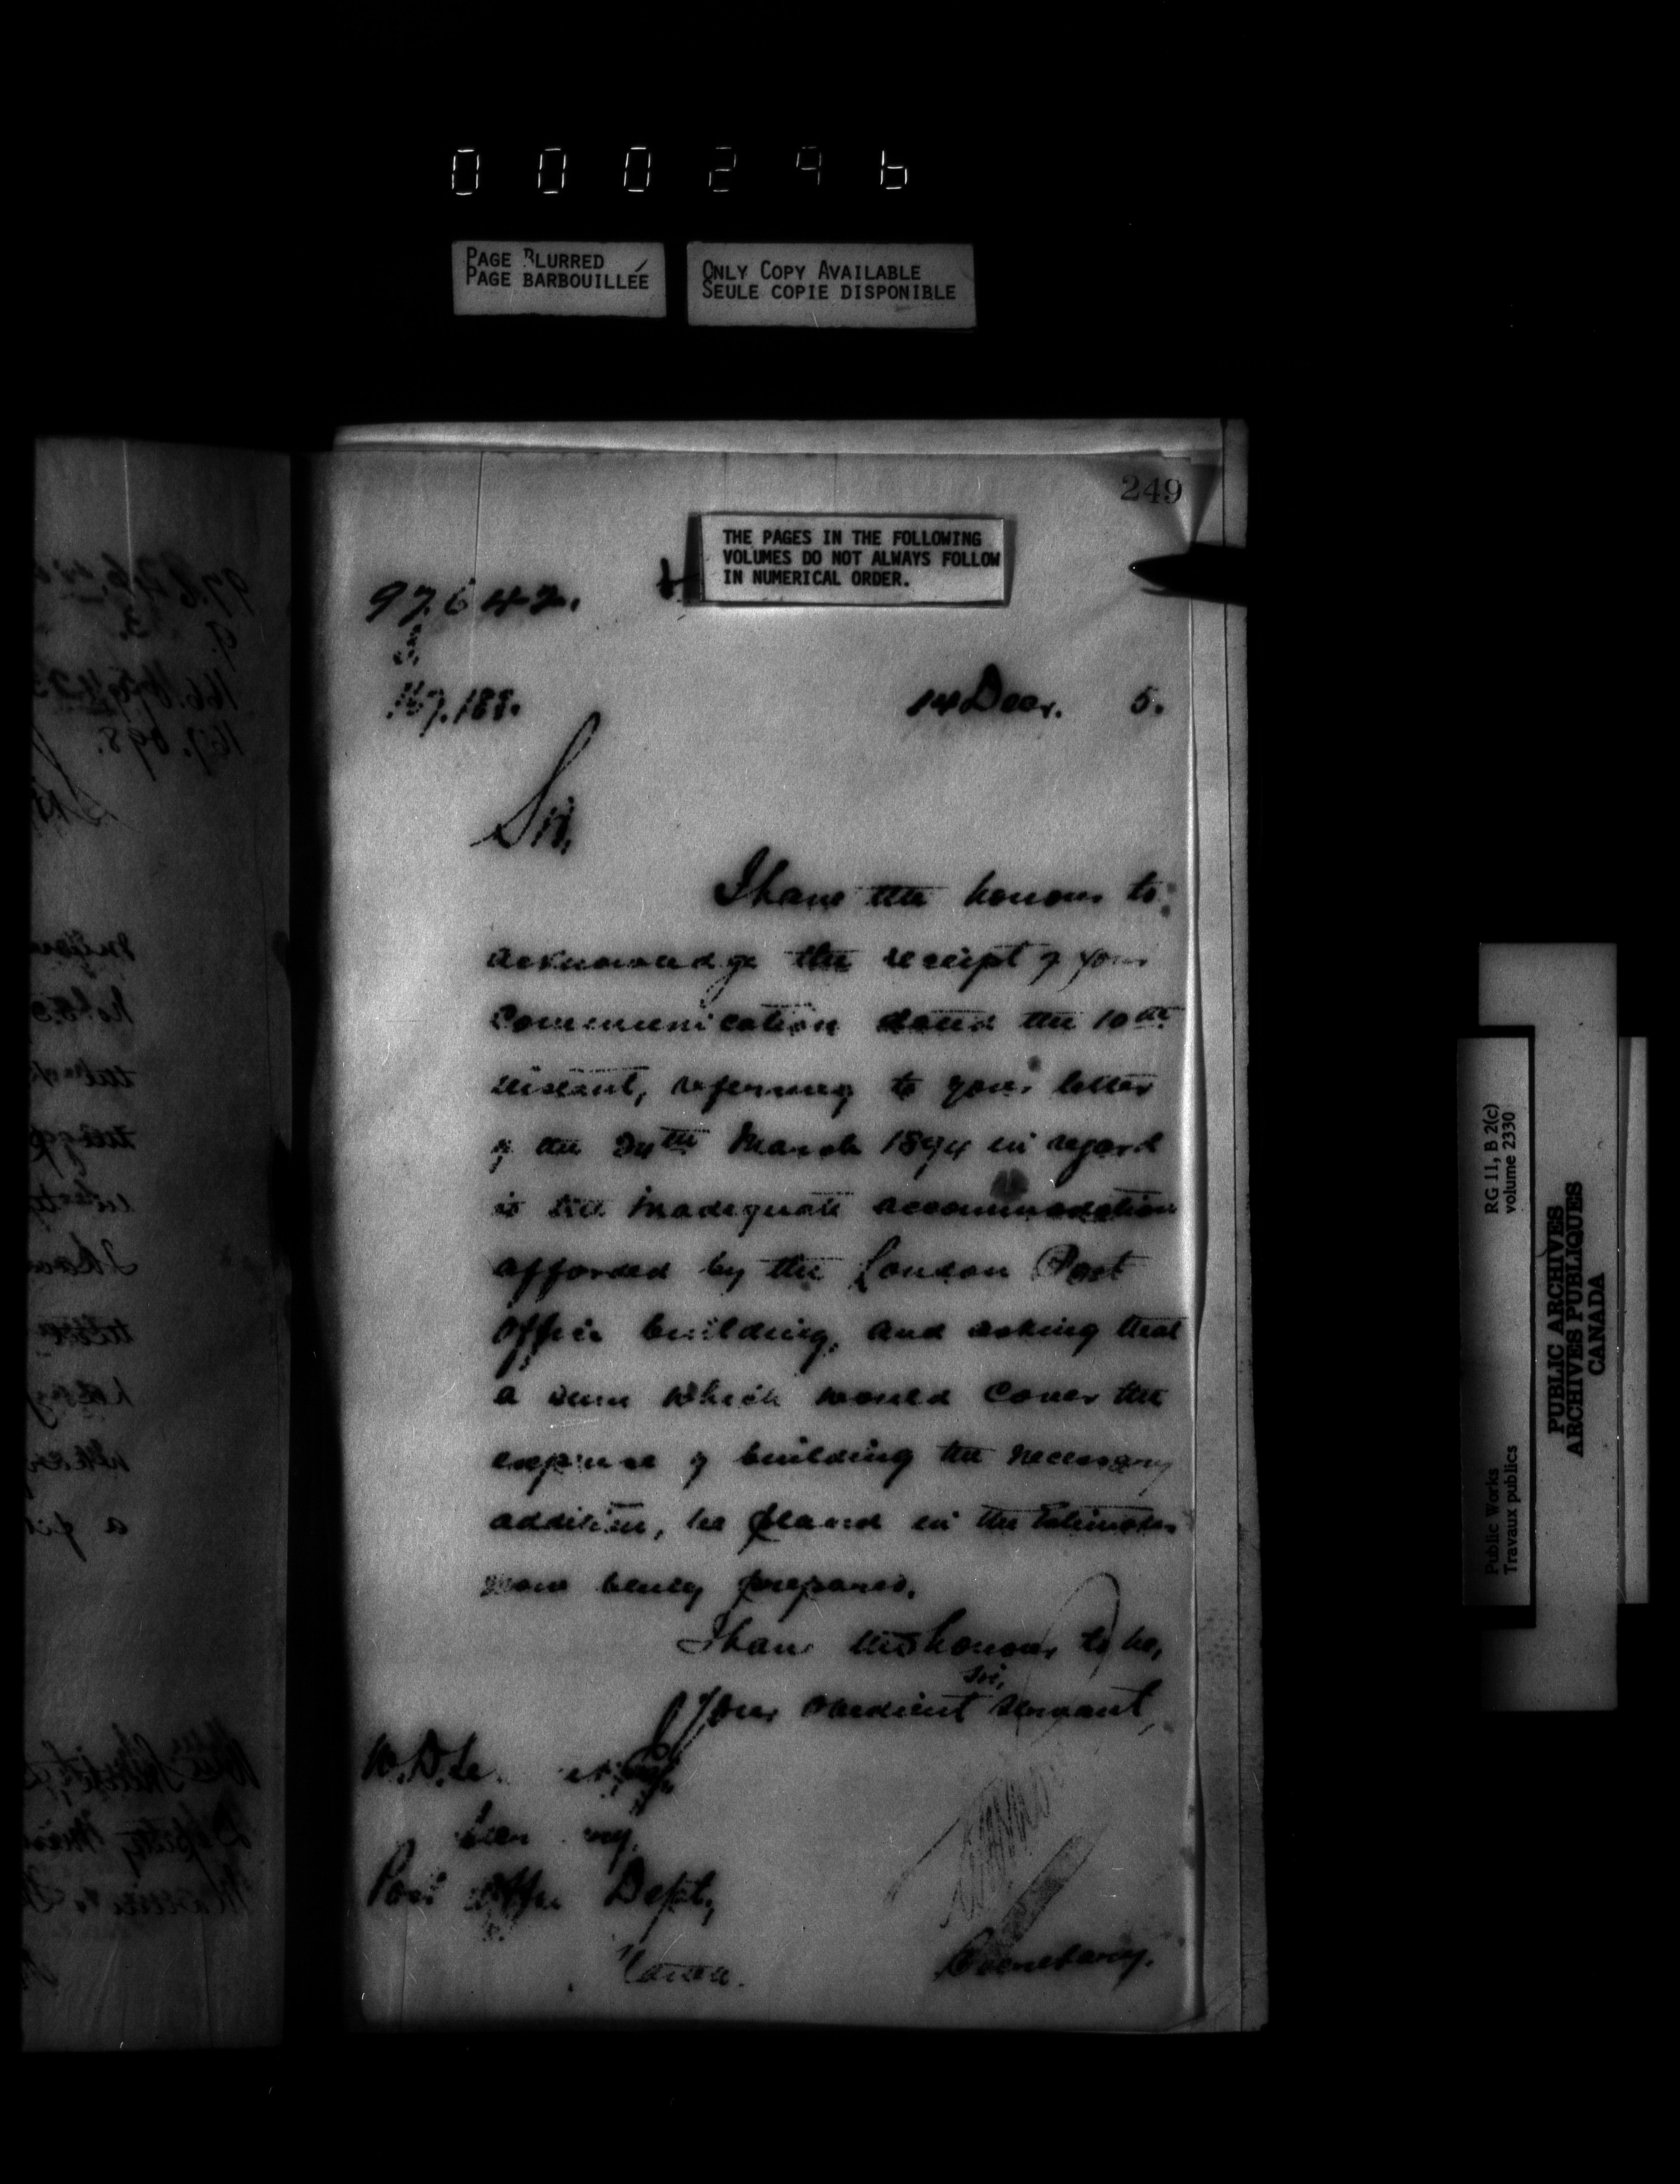 PAGE BLURRED
PAGE BARBOUILLÉE
ONLY COPY AVAILABLE
SEULE COPIE DISPONIBLE
249
THE PAGES IN THE FOLLOWING
VOLUMES DO NOT ALWAYS FOLLOW
IN NUMERICAL ORDER.
97.642.
3.
167.188.
14 Decr. 5.
Sir,
I have the honour to
acknowledge the receipt of your
communication dated the 10th
instant, referring to your letter
of the March 1894 in regard
to the inadequate accommodation
afforded by the London Post
Office building, and asking that
a sum which would cover the
expense of building the necessary
addition, be placed in the Estimates
now being prepared.
I have the honour to be,
Sir,
Your obedient servant,
W.D. Le
Post Office Dept.,
Secretary.
RG 11, B 2(c)
volume 2330
Public Works
Travaux publics
PUBLIC ARCHIVES
ARCHIVES PUBLIQUES
CANADA